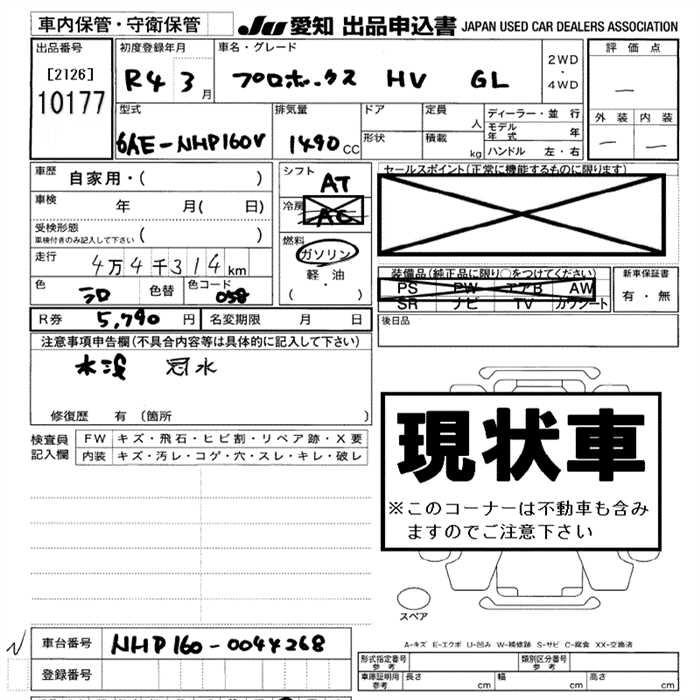 車内保管・守衛保管
JU 愛知 出品申込書 JAPAN USED CAR DEALERS ASSOCIATION
出品番号
[2126]
10177
初度登録年月
R4 3月
車名・グレード
プロボックス HV GL
2WD
・
4WD
評価点
―
外装 内装
― ―
型式
6AE-NHP160V
排気量
1490CC
ドア
形状
定員
人
積載
kg
ディーラー・並行
モデル年式 年
ハンドル 左・右
車歴 自家用・( )
車検 年 月( 日)
受検形態
車検付きのみ記入して下さい ( )
走行 4万4千314km
色 シロ 色替 色コード 058
シフト AT
冷房 AC
燃料
ガソリン
軽・油
( ・ )
セールスポイント(正常に機能するものに限ります)
装備品(純正品に限り○をつけてください)
PS PW エアB AW
SR ナビ TV カワシート
新車保証書
有・無
後日品
R券 5,790円 名変期限 月 日
注意事項申告欄(不具合内容等は具体的に記入して下さい)
水没 冠水
修復歴 有(箇所 )
検査員記入欄
FW キズ・飛石・ヒビ割・リペア跡・X要
内装 キズ・汚レ・コゲ・穴・スレ・キレ・破レ
現状車
※このコーナーは不動車も含み
ますのでご注意下さい
スペア
A-キズ E-エクボ U-凹み W-補修跡 S-サビ C-腐食 XX-交換済
車台番号 NHP160-0044268
登録番号
形式指定番号
参考
類別区分番号
参考
車庫証明用
参考
長さ cm 幅 cm 高さ cm